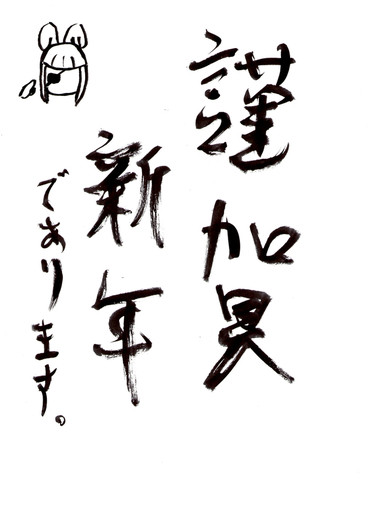 謹賀
新年
であります。